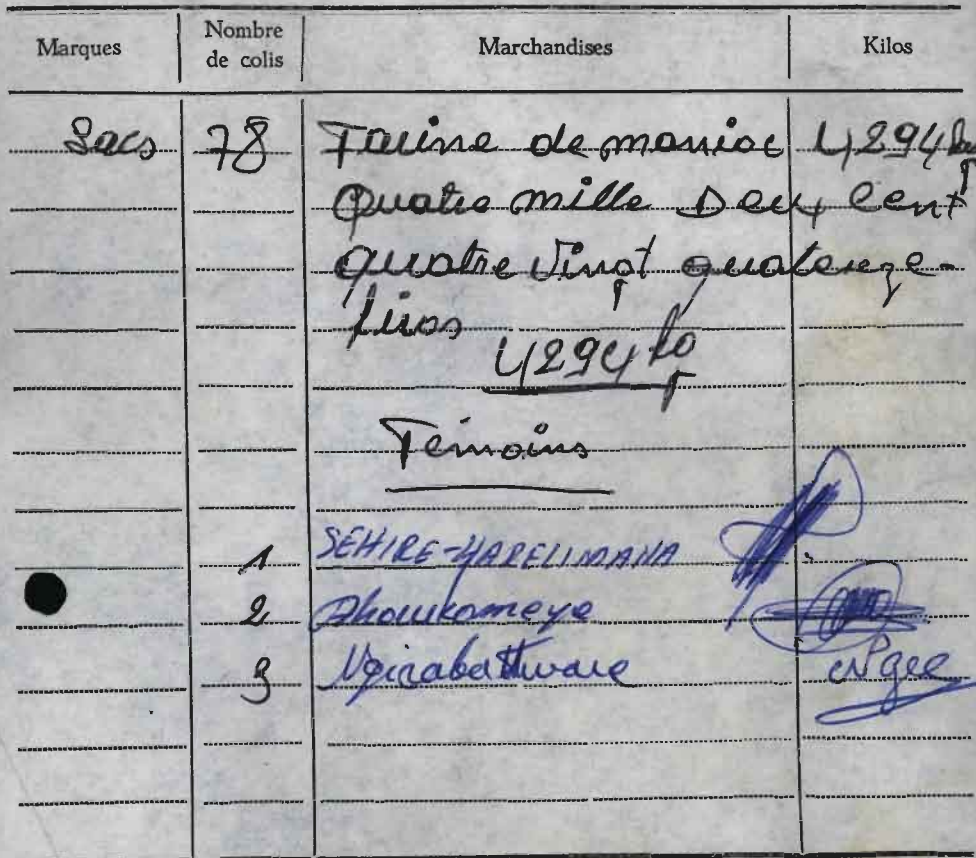 Marques Nombre de colis Marchandises Kilos
Sacs 78 Farine de manioc 4294 kg
Quatre mille Deux Cent
quatre Vingt quatorze-
kilos
4294 kg
Témoins
1 SEHIRE-HARELIMANA
2
3 Ngirabatware